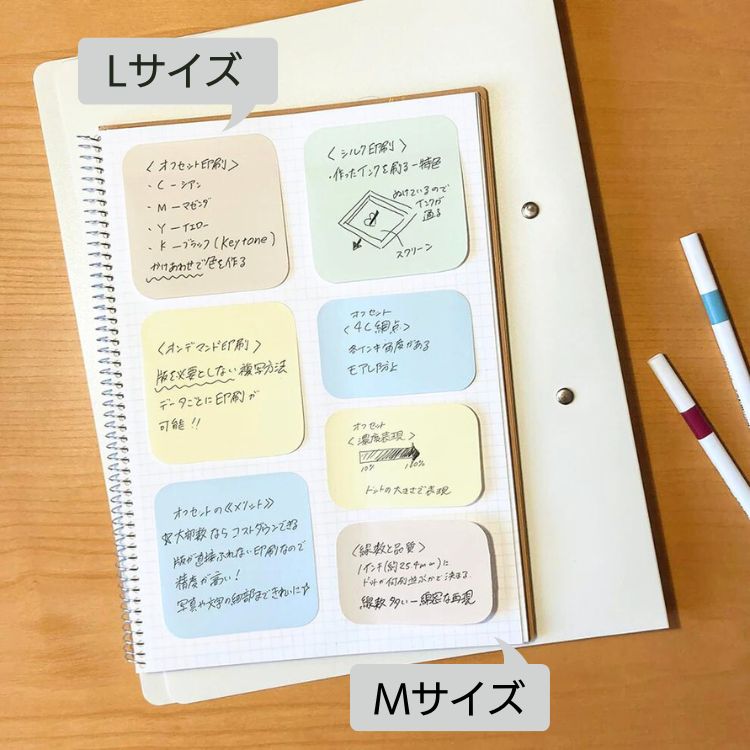 Lサイズ
〈オフセット印刷〉
・C－シアン
・M－マゼンダ
・Y－イエロー
・K－ブラック(Keytone)
かけあわせで色を作る
〈シルク印刷〉
・作ったインクを刷る－特色
ぬけているので
インクが
通る
スクリーン
〈オンデマンド印刷〉
版を必要としない複写方法
データごとに印刷が
可能!!
オフセット
〈4C網点〉
各インキ角度がある
モアレ防止
オフセット
〈濃度表現〉
10% 100%
ドットの大きさで表現
オフセットの《メリット》
☆大部数ならコストダウンできる
版が直接ふれない印刷なので
精度が高い!
写真や文字の細部まできれいに☆
〈線数と品質〉
1インチ(約254mm)に
ドットが何列並ぶかと決まる
線数多い－綿密な再現
Mサイズ